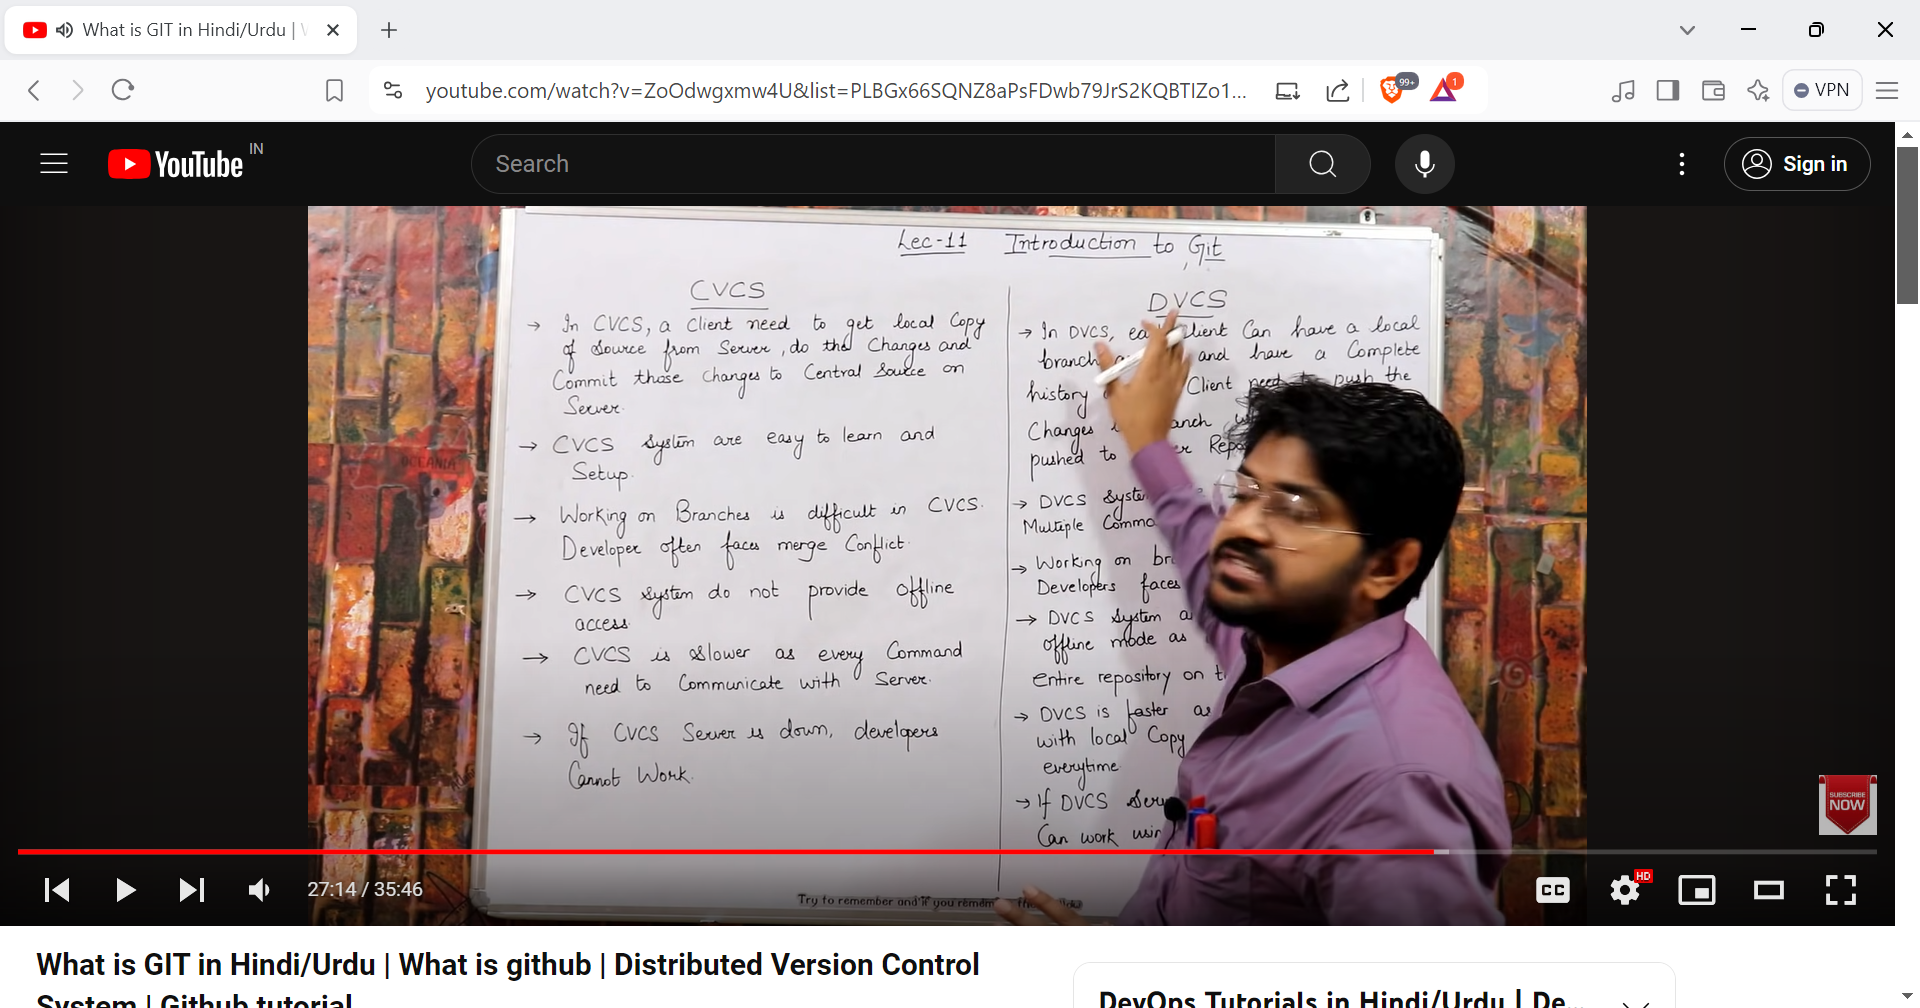 What is GIT in Hindi/Urdu |
youtube.com/watch?v=ZoOdwgxmw4U&list=PLBGx66SQNZ8aPsFDwb79JrS2KQBTIZo1...
99+
1
VPN
YouTube IN
Search
Sign in
Lec-11 Introduction to Git
CVCS
→ In CVCS, a Client need to get local Copy
of Source from Server, do the Changes and
Commit those changes to Central Source on
Server.
→ CVCS System are easy to learn and
Setup.
→ Working on Branches is difficult in CVCS.
Developer often faces merge Conflict.
→ CVCS System do not provide offline
access.
→ CVCS is Slower as every Command
need to Communicate with Server.
→ If CVCS Server is down, developers
Cannot Work.
DVCS
→ In DVCS, client Can have a local
branch and have a Complete
history Client need to push the
Changes
pushed to
→ DVCS
Multiple
→ Working on
Developers faces
→ DVCS System
offline mode as
entire repository on
→ DVCS is faster as
with local Copy
everytime.
→ If DVCS
Can work
Try to remember and if you
SUBSCRIBE
NOW
27:14 / 35:46
CC
HD
What is GIT in Hindi/Urdu | What is github | Distributed Version Control
System | Github tutorial
DevOps Tutorials in Hindi/Urdu | De...